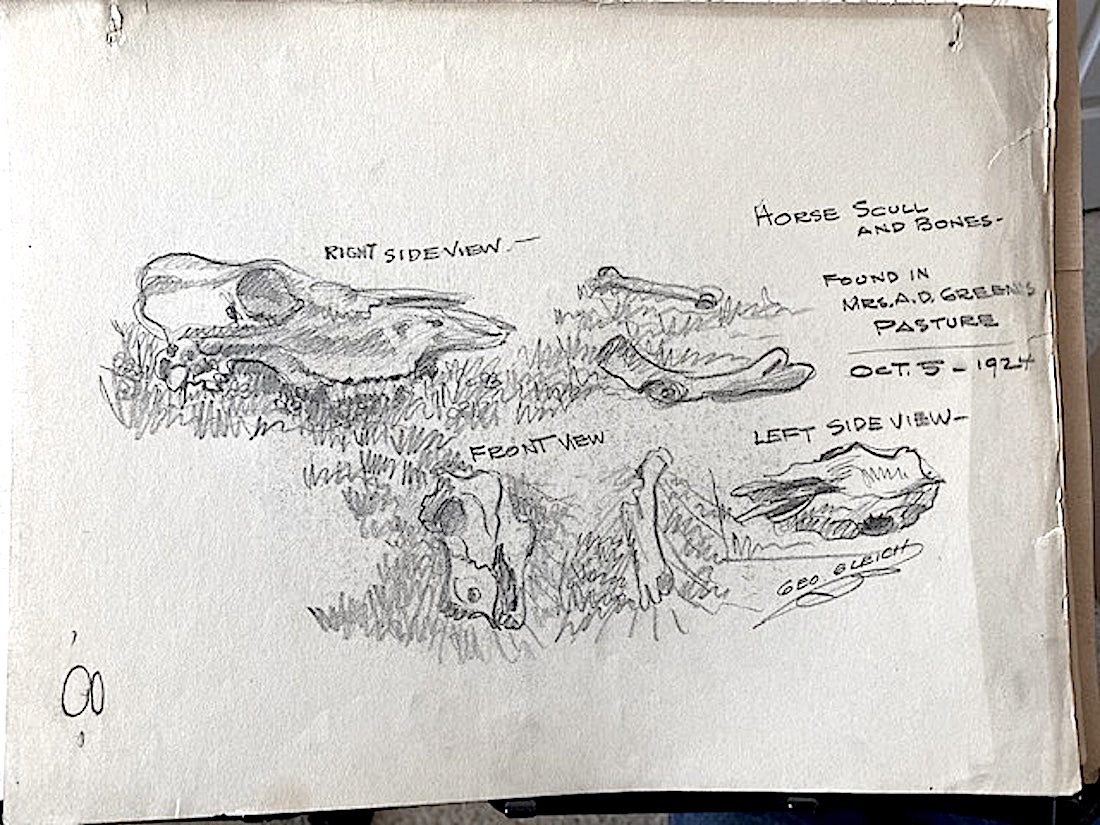 RIGHT SIDE VIEW.—
HORSE SCULL
AND BONES-
FOUND IN
MRS. A.D. GREEN'S
PASTURE
OCT. 5 - 1924
FRONT VIEW
LEFT SIDE VIEW—
GEO GLEICH